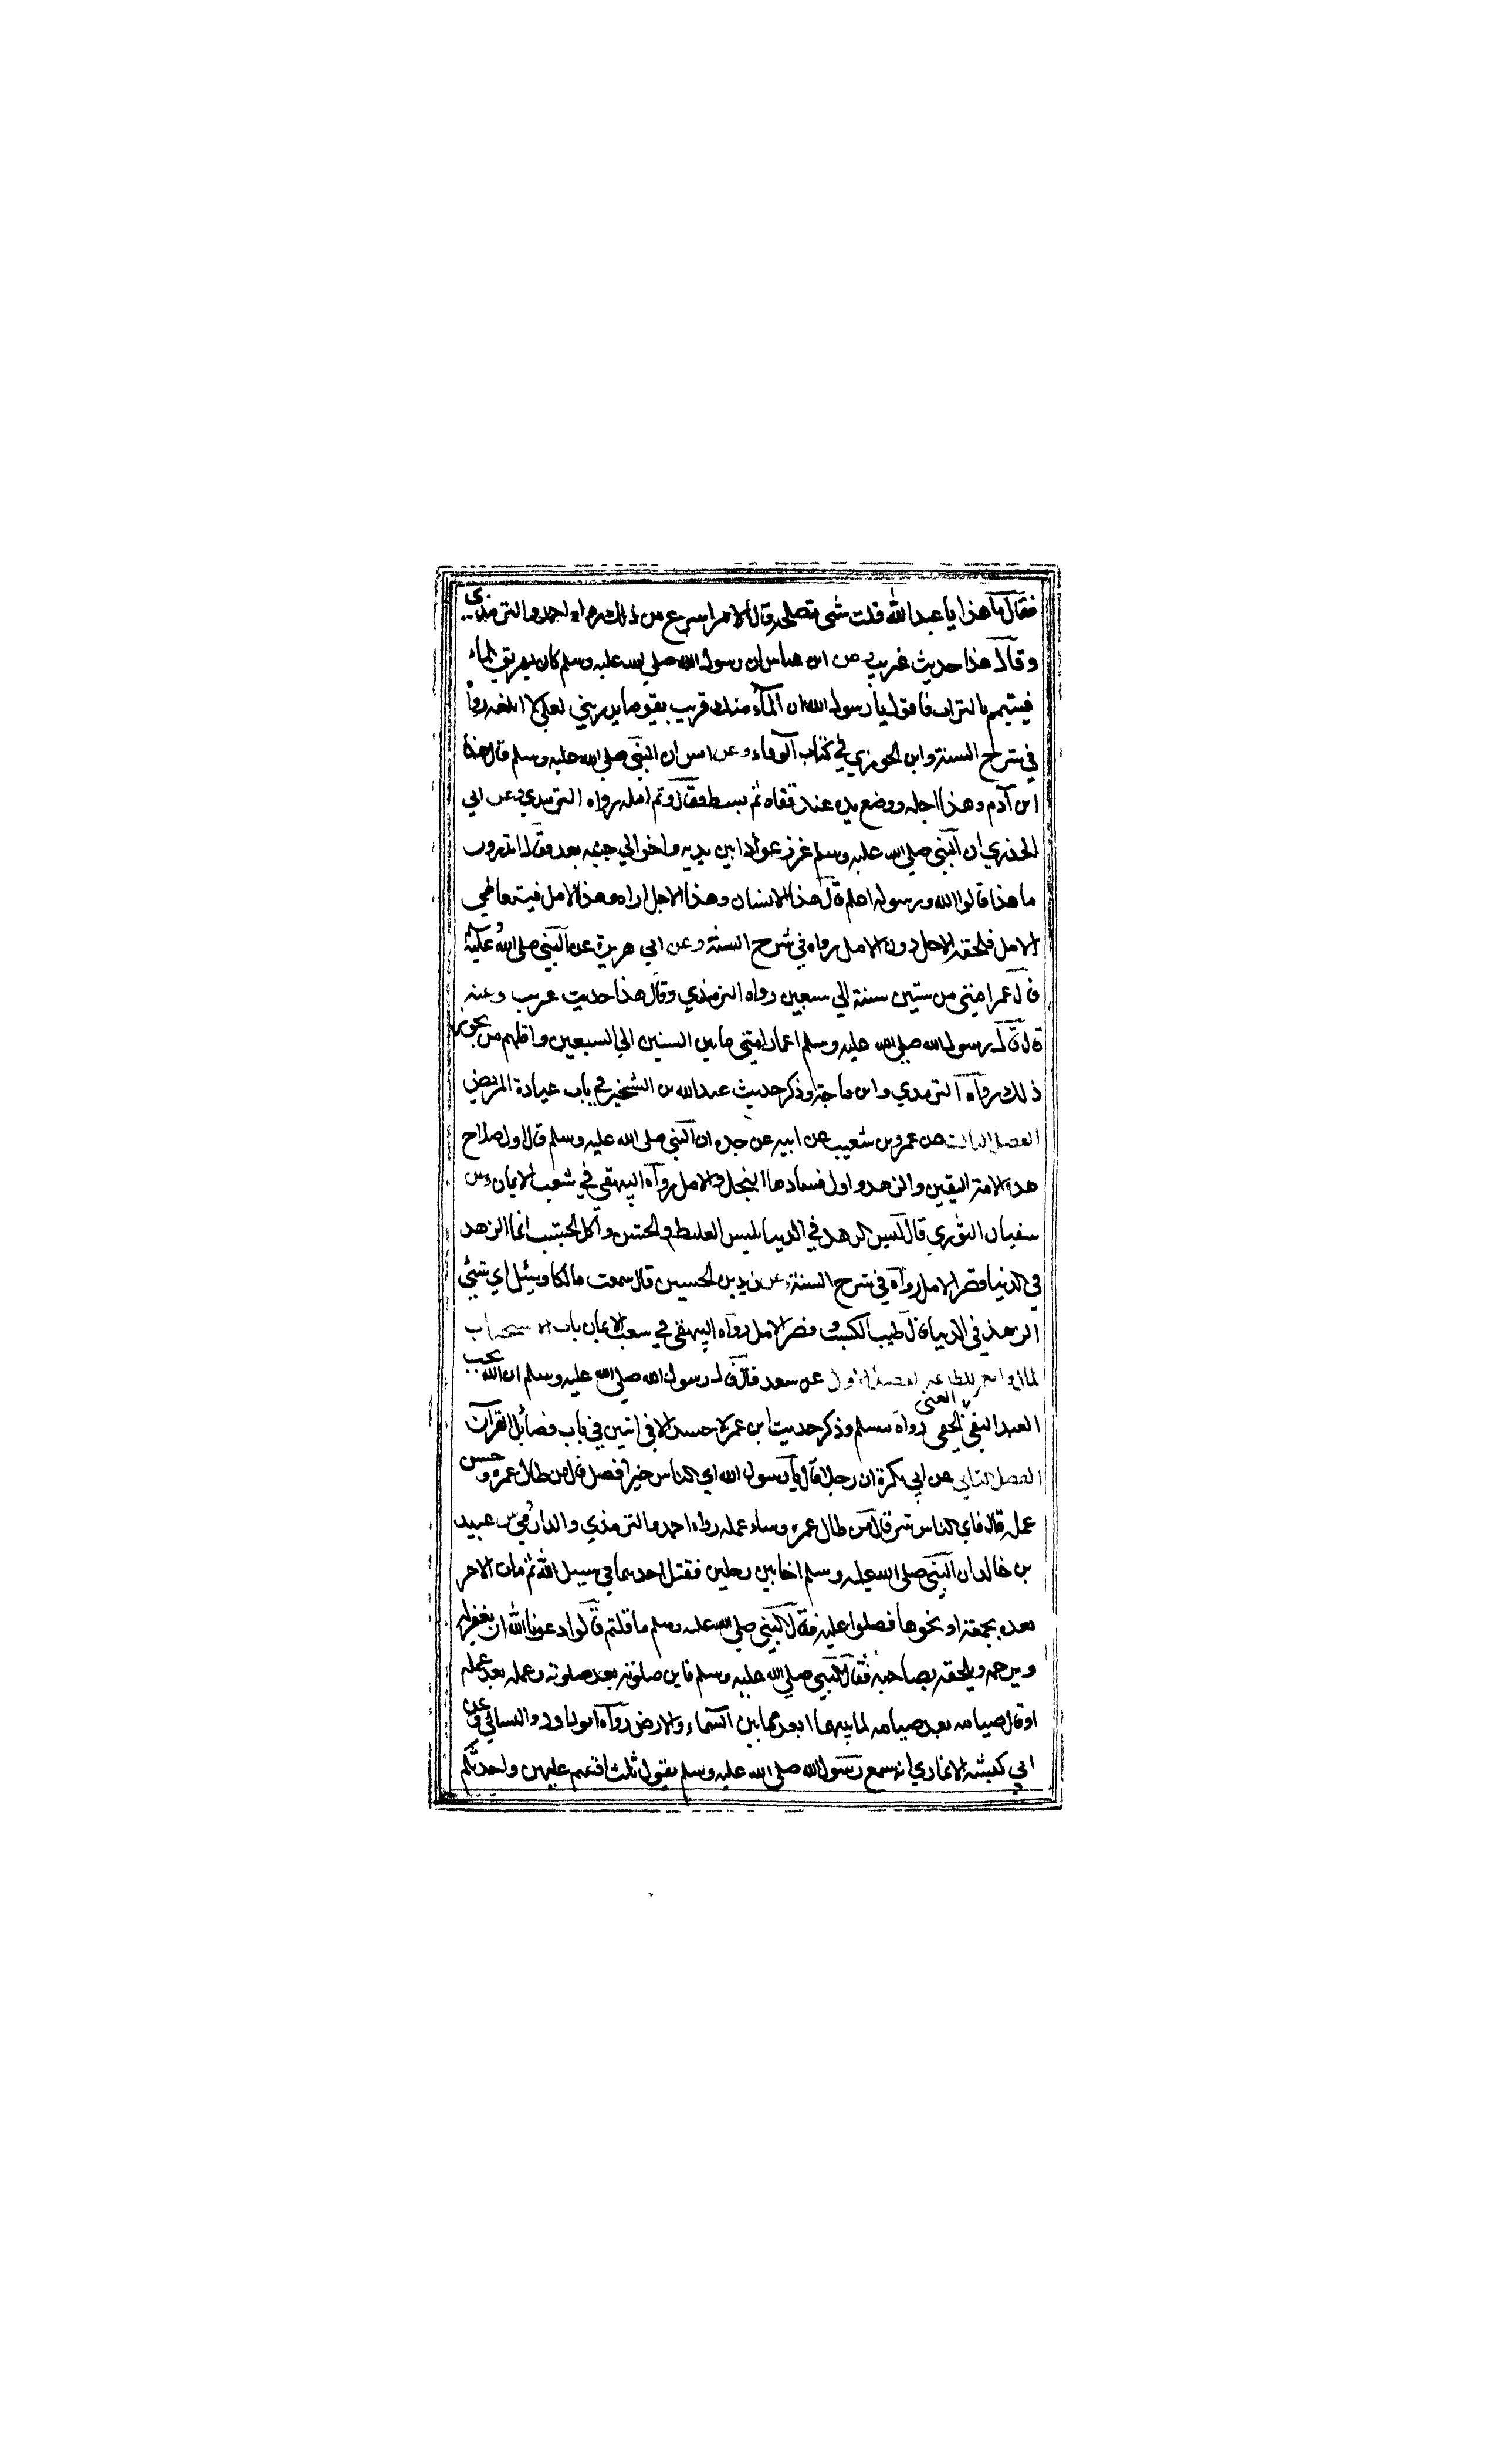 فقال ما هذا يا عبد الله قلت شئ نصلحه قال الامر اسرع من ذلك رواه احمد والترمذي
وقال هذا حديث غريب وعن ابن عباس ان رسول الله صلي الله عليه وسلم كان يهريق الماء
فيتيمم بالتراب فاقول يا رسول الله ان المآء منك قريب يقول ما يدريني لعلي لا ابلغه رواه
في شرح السنة وابن الجوزي في كتاب الوفاء وعن انس ان النبي صلي الله عليه وسلم قال هذا
ابن آدم وهذا اجله ووضع يده عند قفاه ثم بسط فقال وثم امله رواه الترمذي وعن ابي
الخدري ان النبي صلي الله عليه وسلم غرز عودا بين يديه واخر الي جنبه بعد فقال اتدرون
ما هذا قالوا الله ورسوله اعلم قال هذا الانسان وهذا الاجل اراه وهذا الامل فيتعاطي
الامل فلحقه الاجل دون الامل رواه في شرح السنة وعن ابي هريرة عن النبي صلي الله عليه
قال عمر امتي من ستين سنة الي سبعين رواه الترمذي وقال هذا حديث غريب وعنه
قال قال رسول الله صلي الله عليه وسلم اعمار امتي ما بين الستين الي السبعين واقلهم من يجوز
ذلك رواه الترمدي وابن ماجة وذكر حديث عبد الله بن الشخير في باب عيادة المريض
الفصل الثالث عن عمرو بن شعيب عن ابيه عن جده ان النبي صلي الله عليه وسلم قال اول صلاح
هذه الامة اليقين والزهد واول فسادها البخل والامل رواه البيهقي في شعب الايمان وعن
سفيان الثوري قال ليس الزهد في الدنيا بلبس الغليظ والخشن واكل الجشب انما الزهد
في الدنيا قصر الامل رواه في شرح السنة وعن زيد بن الحسين قال سمعت مالكا وسئل اي شئي
الزهد في الدنيا قال طيب الكسب وقصر الامل رواه البيهقي في شعب الايمان باب الاستحباب
المال والعمر للطاعة الفصل الاول عن سعد قال قال رسول الله صلي الله عليه وسلم ان الله يحب
العبد التقي الغني الخفي رواه مسلم وذكر حديث ابن عمر لا حسد الا في اثنين في باب فضائل القرآن
الفصل الثاني عن ابي بكرة ان رجلا قال يا رسول الله اي الناس خير افضل قال من طال عمره وحسن
عمله قال فاي الناس شر قال من طال عمره وساء عمله رواه احمد والترمذي والدارمي وعن عبيد
بن خالد ان النبي صلي الله عليه وسلم اخا بين رجلين فقتل احدهما في سبيل الله ثم مات الاخر
بعده بجمعة او نحوها فصلوا عليه فقال النبي صلي الله عليه وسلم ما قلتم قالوا دعونا الله ان يغفر له
ويرحمه ويلحقه بصاحبه فقال النبي صلي الله عليه وسلم فاين صلوته بعد صلوته وعمله بعد عمله
او قال صيامه بعد صيامه لما بينهما ابعد مما بين السماء والارض رواه ابو داود والنسائي وعن
ابي كبشة الانماري انه سمع رسول الله صلي الله عليه وسلم يقول ثلث اقسم عليهن واحدثكم